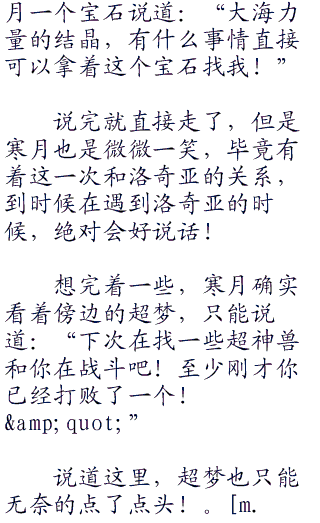 月一个宝石说道：“大海力
量的结晶，有什么事情直接
可以拿着这个宝石找我！”
说完就直接走了，但是
寒月也是微微一笑，毕竟有
着这一次和洛奇亚的关系，
到时候在遇到洛奇亚的时
候，绝对会好说话！
想完着一些，寒月确实
看着傍边的超梦，只能说
道：“下次在找一些超神兽
和你在战斗吧！至少刚才你
已经打败了一个！
&amp;quot;”
说道这里，超梦也只能
无奈的点了点头！。[m.